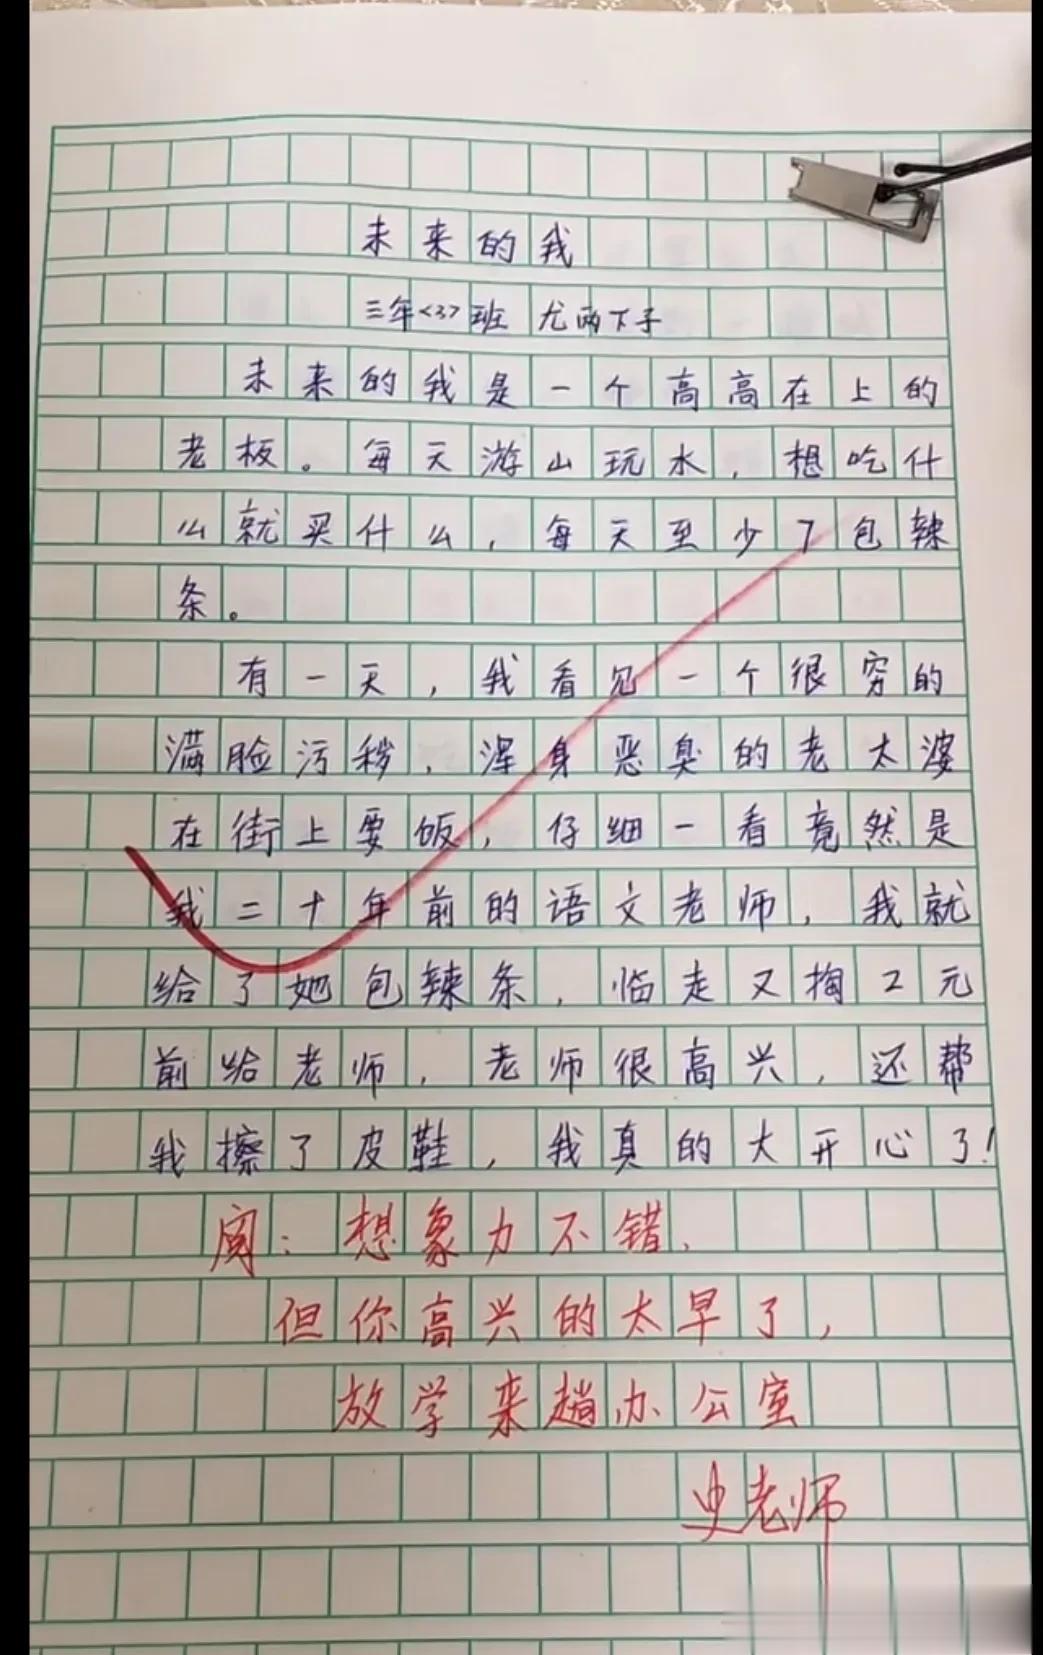 未来的我
三年<3>班 尤两下子
未来的我是一个高高在上的
老板。每天游山玩水，想吃什
么就买什么，每天至少7包辣
条。
有一天，我看见一个很穷的
满脸污秽，浑身恶臭的老太婆
在街上要饭，仔细一看竟然是
我二十年前的语文老师，我就
给了她包辣条，临走又掏2元
前给老师，老师很高兴，还帮
我擦了皮鞋，我真的大开心了!
阅：想象力不错，
但你高兴的太早了，
放学来趟办公室
史老师